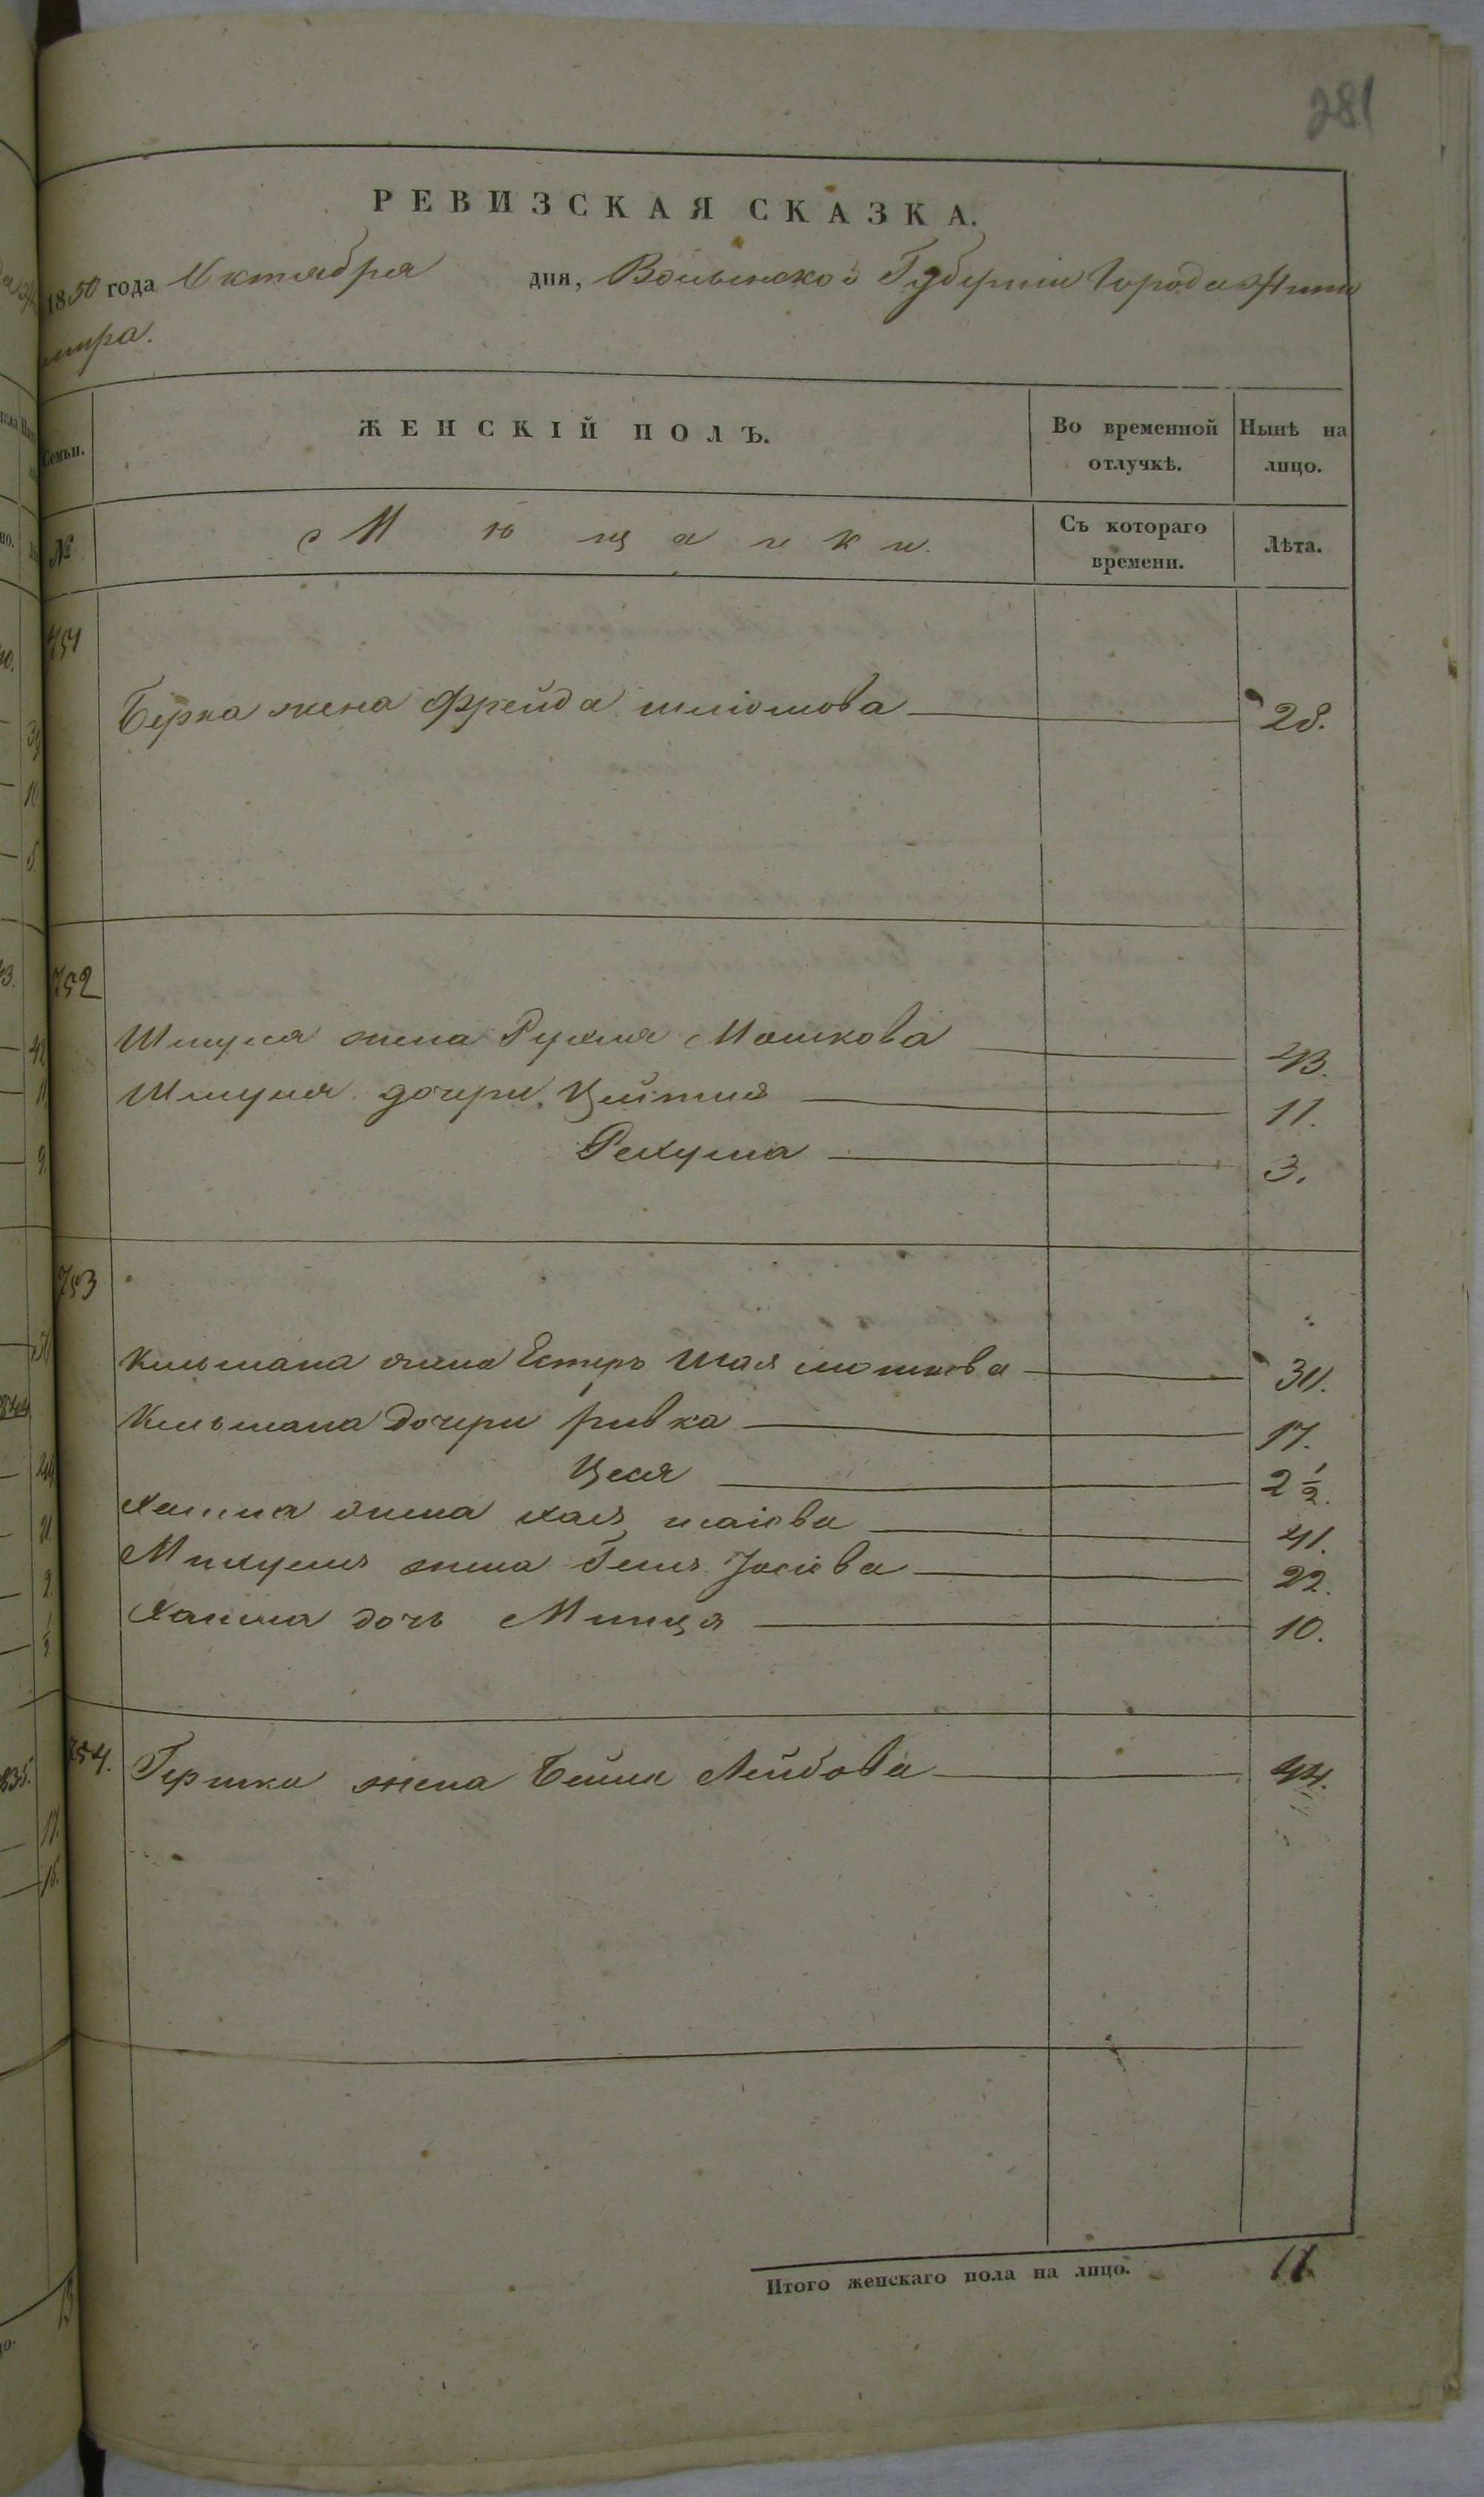 281
РЕВИЗСКАЯ СКАЗКА.
1850 года Октября дня, Волынской Губернии Города Жито
мира.
Семьи. ЖЕНСКІЙ ПОЛЪ. Во временной отлучкѣ. Нынѣ на лицо.
№ Мѣщанки. Съ котораго времени. Лѣта.
751
Берка жена Фрейда шлiомова 28.
752
Шмуля жена Рухля Мошкова 43.
Шмуля дочери Цейтля 11.
Рехума 3.
753
Кельмана жена Естеръ Шая мошкова 30.
Кельмана Дочери ривка 17.
Цеся 2 1/2.
Хаима жена хая шаiова 41.
Михуеля жена Геня Іосiева 22.
Хаима дочь Минця 10.
754. Гершка жена Бейла Лейбова 44.
Итого женскаго пола на лицо. 11.